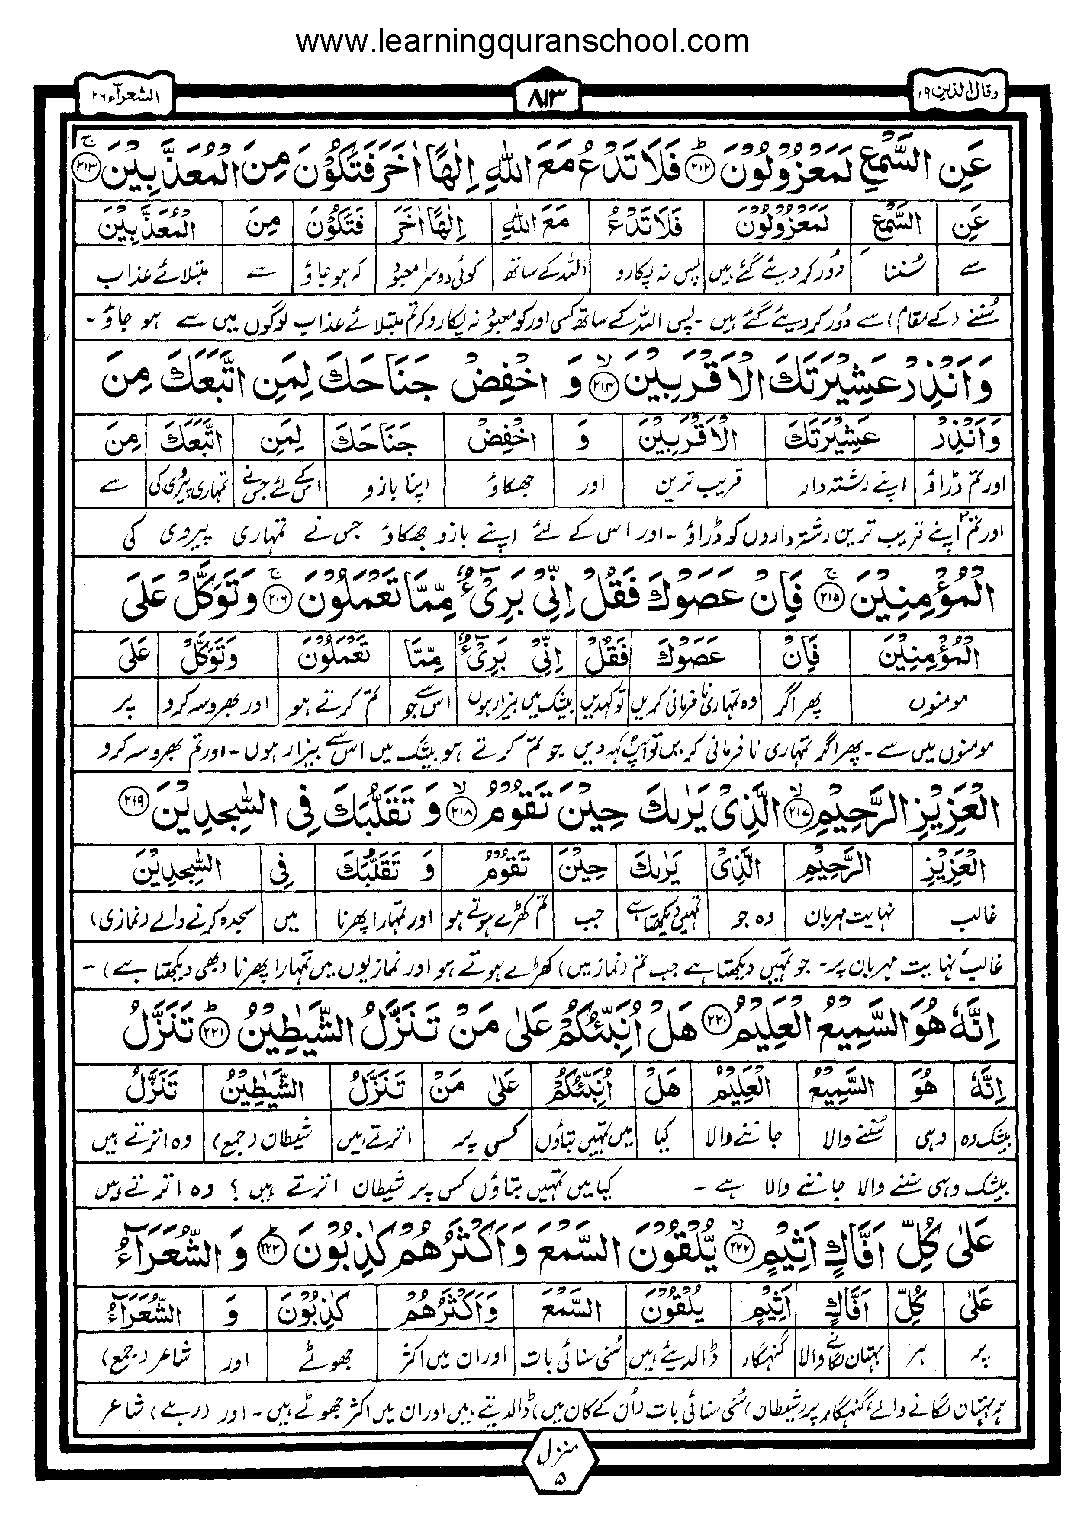 www.learningquranschool.com
وقال الذین ۱۹ ۸۱۳ الشعرآء ۲۶
عَنِ السَّمْعِ لَمَعْزُوْلُوْنَ ﴿۲۱۲﴾ فَلَا تَدْعُ مَعَ اللّٰهِ اِلٰهًا اٰخَرَ فَتَكُوْنَ مِنَ الْمُعَذَّبِيْنَ ﴿۲۱۳﴾
عَنِ السَّمْعِ لَمَعْزُوْلُوْنَ فَلَا تَدْعُ مَعَ اللّٰهِ اِلٰهًا اٰخَرَ فَتَكُوْنَ مِنَ الْمُعَذَّبِيْنَ
سے سُننا دُور کر دیئے گئے ہیں پس نہ پکارو اللہ کے ساتھ کوئی دوسرا معبود کہ ہو جاؤ سے مبتلائے عذاب
سُننے (کے مقام) سے دُور کر دیئے گئے ہیں ۔ پس اللہ کے ساتھ کسی اور کو معبود نہ پکارو کہ تم مبتلائے عذاب لوگوں میں سے ہو جاؤ ۔
وَاَنْذِرْ عَشِيْرَتَكَ الْاَقْرَبِيْنَ ﴿۲۱۴﴾ وَ اخْفِضْ جَنَاحَكَ لِمَنِ اتَّبَعَكَ مِنَ
وَاَنْذِرْ عَشِيْرَتَكَ الْاَقْرَبِيْنَ وَ اخْفِضْ جَنَاحَكَ لِمَنِ اتَّبَعَكَ مِنَ
اور تم ڈراؤ اپنے رشتہ دار قریب ترین اور جھکاؤ اپنا بازو اس کے لئے جس نے تمہاری پیروی کی سے
اور تم اپنے قریب ترین رشتہ داروں کو ڈراؤ ۔ اور اس کے لئے اپنے بازو جھکاؤ جس نے تمہاری پیروی کی
الْمُؤْمِنِيْنَ ﴿۲۱۵﴾ فَاِنْ عَصَوْكَ فَقُلْ اِنِّيْ بَرِيْٓءٌ مِّمَّا تَعْمَلُوْنَ ﴿۲۱۶﴾ وَتَوَكَّلْ عَلَى
الْمُؤْمِنِيْنَ فَاِنْ عَصَوْكَ فَقُلْ اِنِّيْ بَرِيْٓءٌ مِّمَّا تَعْمَلُوْنَ وَتَوَكَّلْ عَلَى
مومنوں پھر اگر وہ تمہاری نافرمانی کریں تو کہدیں بیشک میں بیزار ہوں اس سے جو تم کرتے ہو اور بھروسہ کرو پر
مومنوں میں سے ۔ پھر اگر تمہاری نافرمانی کریں تو آپ کہہ دیں جو تم کرتے ہو بیشک میں اس سے بیزار ہوں ۔ اور تم بھروسہ کرو
الْعَزِيْزِ الرَّحِيْمِ ﴿۲۱۷﴾ الَّذِيْ يَرٰىكَ حِيْنَ تَقُوْمُ ﴿۲۱۸﴾ وَ تَقَلُّبَكَ فِي السّٰجِدِيْنَ ﴿۲۱۹﴾
الْعَزِيْزِ الرَّحِيْمِ الَّذِيْ يَرٰىكَ حِيْنَ تَقُوْمُ وَ تَقَلُّبَكَ فِي السّٰجِدِيْنَ
غالب نہایت مہربان وہ جو تمہیں دیکھتا ہے جب تم کھڑے ہوتے ہو اور تمہارا پھرنا میں سجدہ کرنے والے (نمازی)
غالب نہایت مہربان پر ۔ جو تمہیں دیکھتا ہے جب تم (نماز میں) کھڑے ہوتے ہو اور نمازیوں میں تمہارا پھرنا (بھی دیکھتا ہے) ۔
اِنَّهٗ هُوَ السَّمِيْعُ الْعَلِيْمُ ﴿۲۲۰﴾ هَلْ اُنَبِّئُكُمْ عَلٰى مَنْ تَنَزَّلُ الشَّيٰطِيْنُ ﴿۲۲۱﴾ تَنَزَّلُ
اِنَّهٗ هُوَ السَّمِيْعُ الْعَلِيْمُ هَلْ اُنَبِّئُكُمْ عَلٰى مَنْ تَنَزَّلُ الشَّيٰطِيْنُ تَنَزَّلُ
بیشک وہ وہی سُننے والا جاننے والا کیا میں تمہیں بتاؤں کسی پر اترتے ہیں شیطان (جمع) وہ اترتے ہیں
بیشک وہی سننے والا جاننے والا ہے ۔ کیا میں تمہیں بتاؤں کس پر شیطان اترتے ہیں ؟ وہ اترتے ہیں
عَلٰى كُلِّ اَفَّاكٍ اَثِيْمٍ ﴿۲۲۲﴾ يُّلْقُوْنَ السَّمْعَ وَاَكْثَرُهُمْ كٰذِبُوْنَ ﴿۲۲۳﴾ وَ الشُّعَرَآءُ
عَلٰى كُلِّ اَفَّاكٍ اَثِيْمٍ يُلْقُوْنَ السَّمْعَ وَاَكْثَرُهُمْ كٰذِبُوْنَ وَ الشُّعَرَآءُ
پر ہر بہتان لگانے والا گنہگار ڈالدیتے ہیں سُنی سنائی بات اور ان میں اکثر جھوٹے اور شاعر (جمع)
ہر بہتان لگانے والے، گنہگار پر (شیطان) سُنی سنائی بات (اُن کے کان میں) ڈالدیتے ہیں اور ان میں اکثر جھوٹے ہیں ۔ اور (رہے) شاعر
منزل ۵